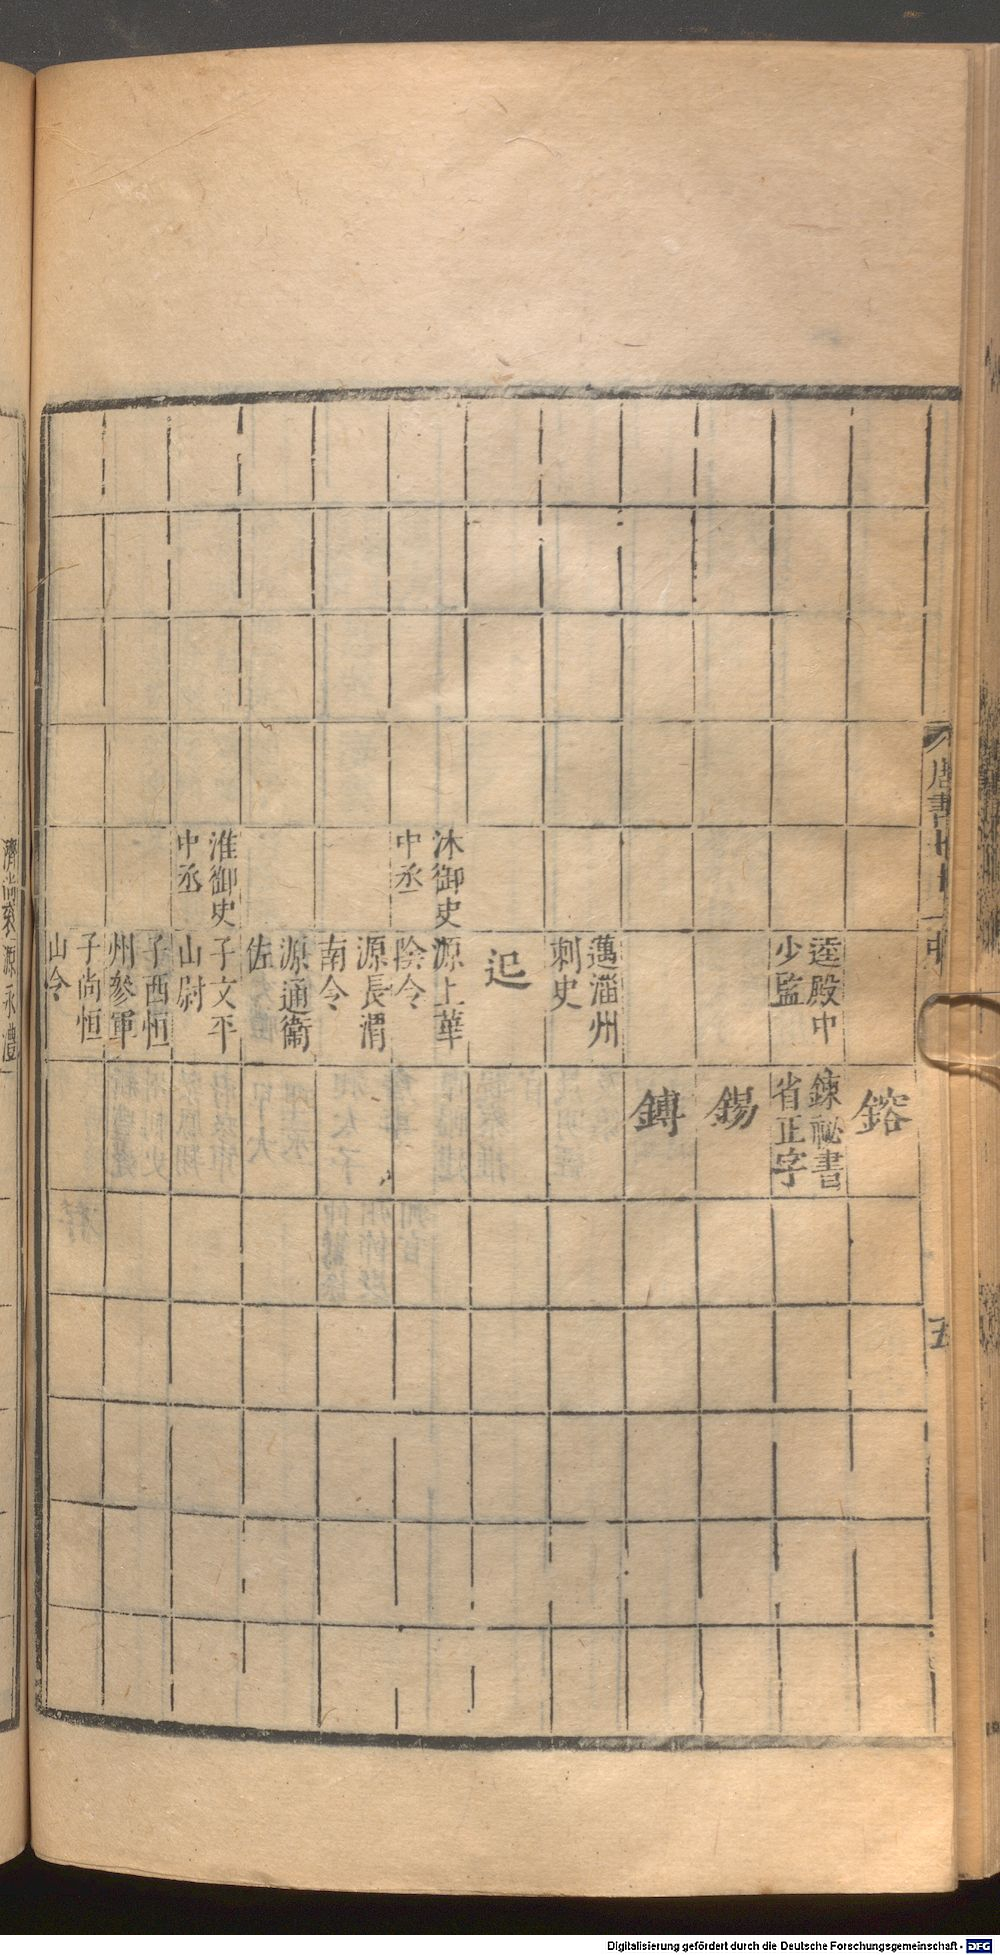 鎔
逵殿中
少監
鍊祕書
省正字
錫
鎛
邁淄州
刺史
迟
沐御史
中丞
源上華
陰令
源長渭
南令
源通衞
佐
淮御史
中丞
子文平
山尉
子酉恒
州參軍
子尚恒
山令
五
源永澧
Digitalisierung gefördert durch die Deutsche Forschungsgemeinschaft - DFG